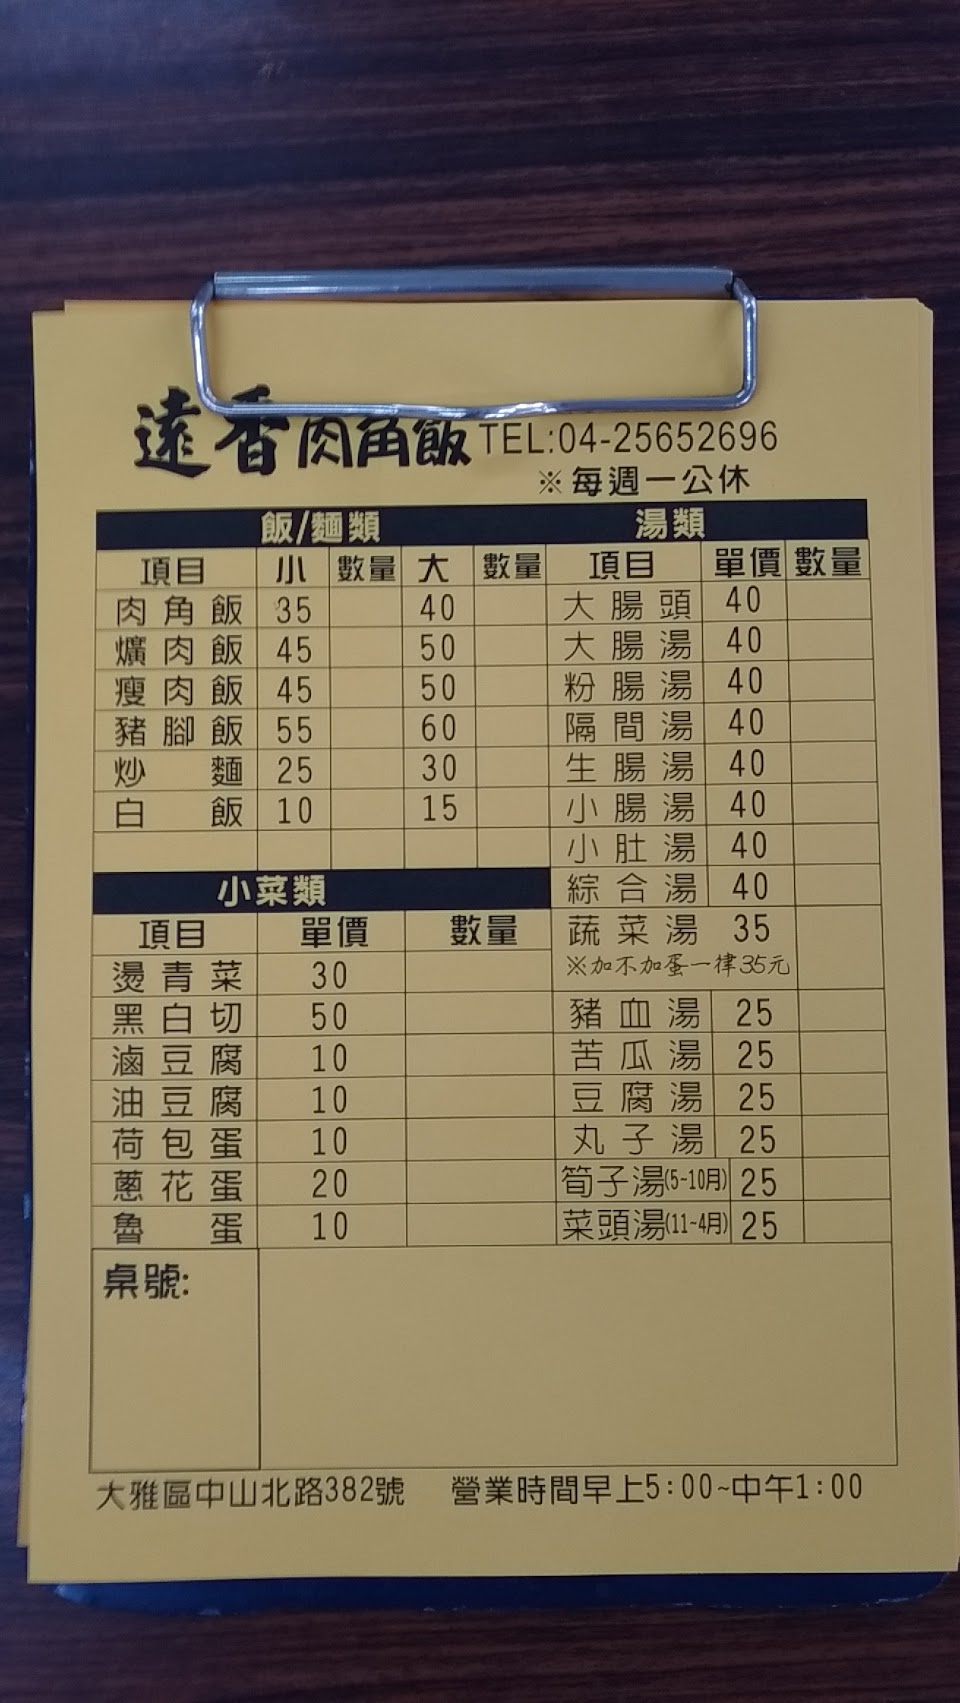 遠香肉角飯 TEL:04-25652696
※每週一公休
飯/麵類
項目 小 數量 大 數量
肉角飯 35 40
爌肉飯 45 50
瘦肉飯 45 50
豬腳飯 55 60
炒麵 25 30
白飯 10 15
小菜類
項目 單價 數量
燙青菜 30
黑白切 50
滷豆腐 10
油豆腐 10
荷包蛋 10
蔥花蛋 20
魯蛋 10
湯類
項目 單價 數量
大腸頭 40
大腸湯 40
粉腸湯 40
隔間湯 40
生腸湯 40
小腸湯 40
小肚湯 40
綜合湯 40
蔬菜湯 35
※加不加蛋一律35元
豬血湯 25
苦瓜湯 25
豆腐湯 25
丸子湯 25
筍子湯(5~10月) 25
菜頭湯(11~4月) 25
桌號:
大雅區中山北路382號 營業時間早上5:00~中午1:00